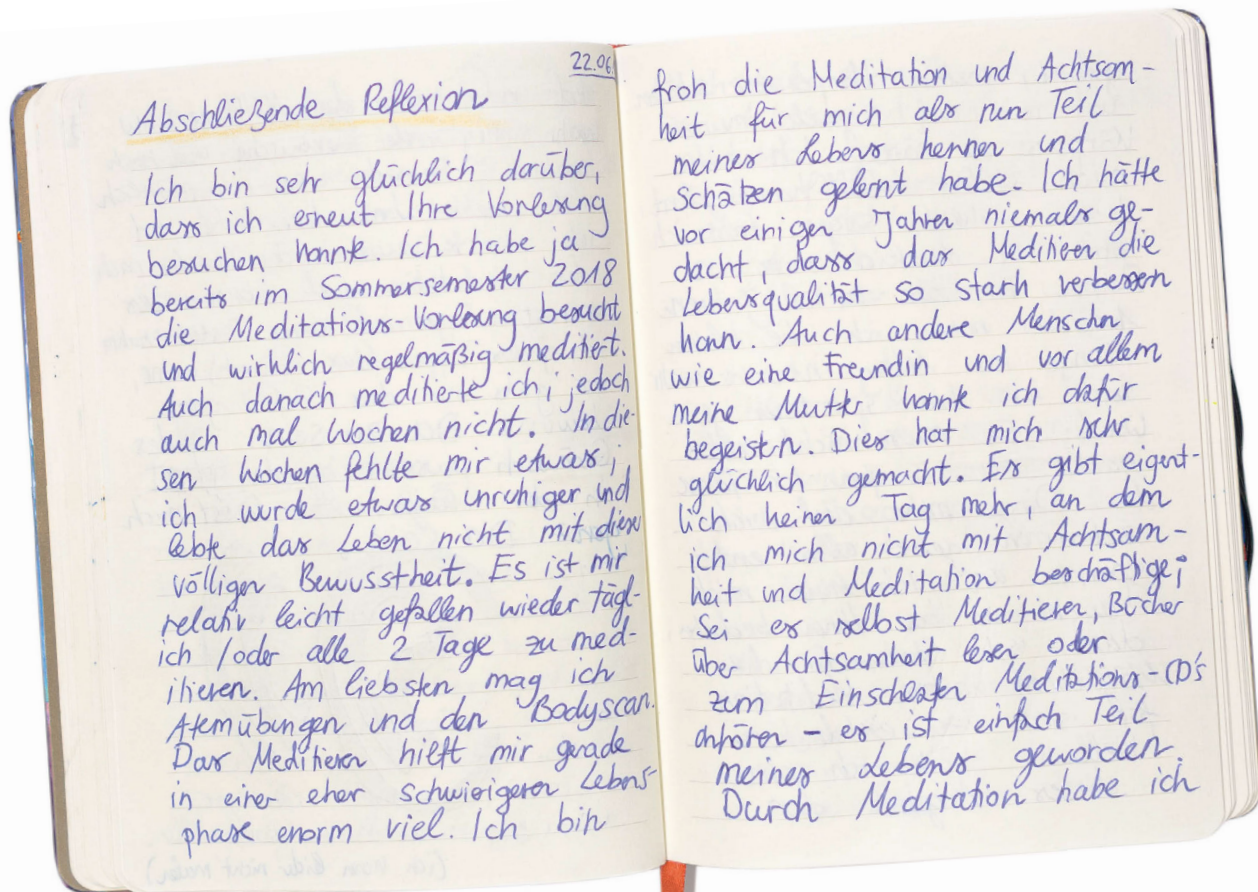 22.06.
Abschließende Reflexion
Ich bin sehr glücklich darüber,
dass ich erneut Ihre Vorlesung
besuchen konnte Ich habe ja
bereits im Sommersemester 2018
die Meditations-Vorlesung besucht
und wirklich regelmäßig meditiert.
Auch danach meditierte ich, jedoch
auch mal Wochen nicht. In die-
sen Wochen fehlte mir etwas,
ich wurde etwas unruhiger und
lebte das Leben nicht mit dieser
völligen Bewusstheit. Es ist mir
relativ leicht gefallen wieder täg-
ich /oder alle 2 Tage zu med-
itieren. Am liebsten mag ich
Atemübungen und den Bodyscan.
Das Meditieren hilft mir gerade
in einer eher schwierigeren Lebens-
phase enorm viel. Ich bin
froh die Meditation und Achtsam-
keit für mich als nun Teil
meines Lebens kennen und
schätzen gelernt habe. Ich hätte
vor einigen Jahren niemals ge-
dacht, dass das Meditieren die
Lebensqualität so stark verbessern
kann. Auch andere Menschen
wie eine Freundin und vor allem
meine Mutter konnte ich dafür
begeistern. Dies hat mich sehr
glücklich gemacht. Es gibt eigent-
lich keinen Tag mehr, an dem
ich mich nicht mit Achtsam-
keit und Meditation beschäftige;
Sei es selbst Meditieren, Bücher
über Achtsamkeit lesen oder
zum Einschlafen Meditations-CD's
anhören - es ist einfach Teil
meines Lebens geworden.
Durch Meditation habe ich